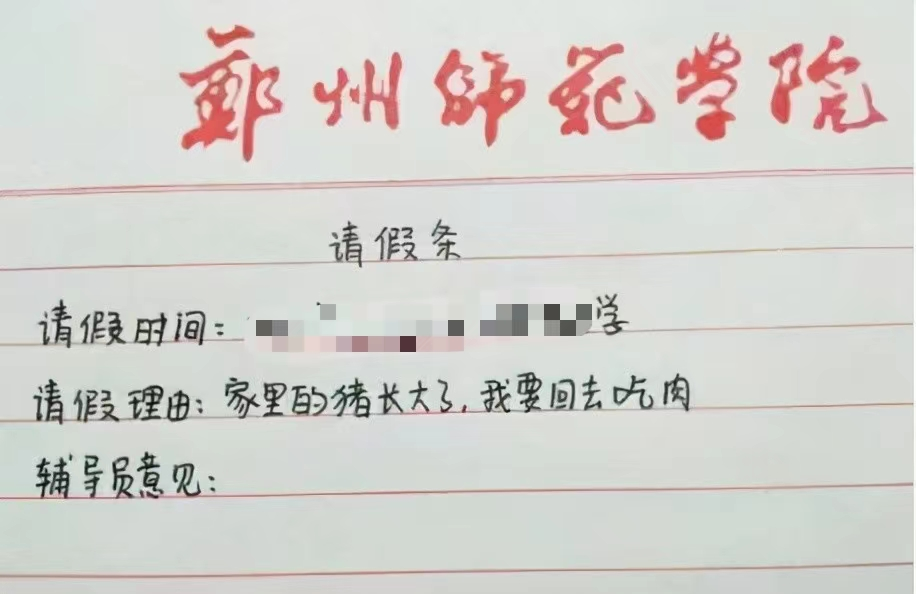 郑州师范学院
请假条
请假时间：学
请假理由：家里的猪长大了，我要回去吃肉
辅导员意见：